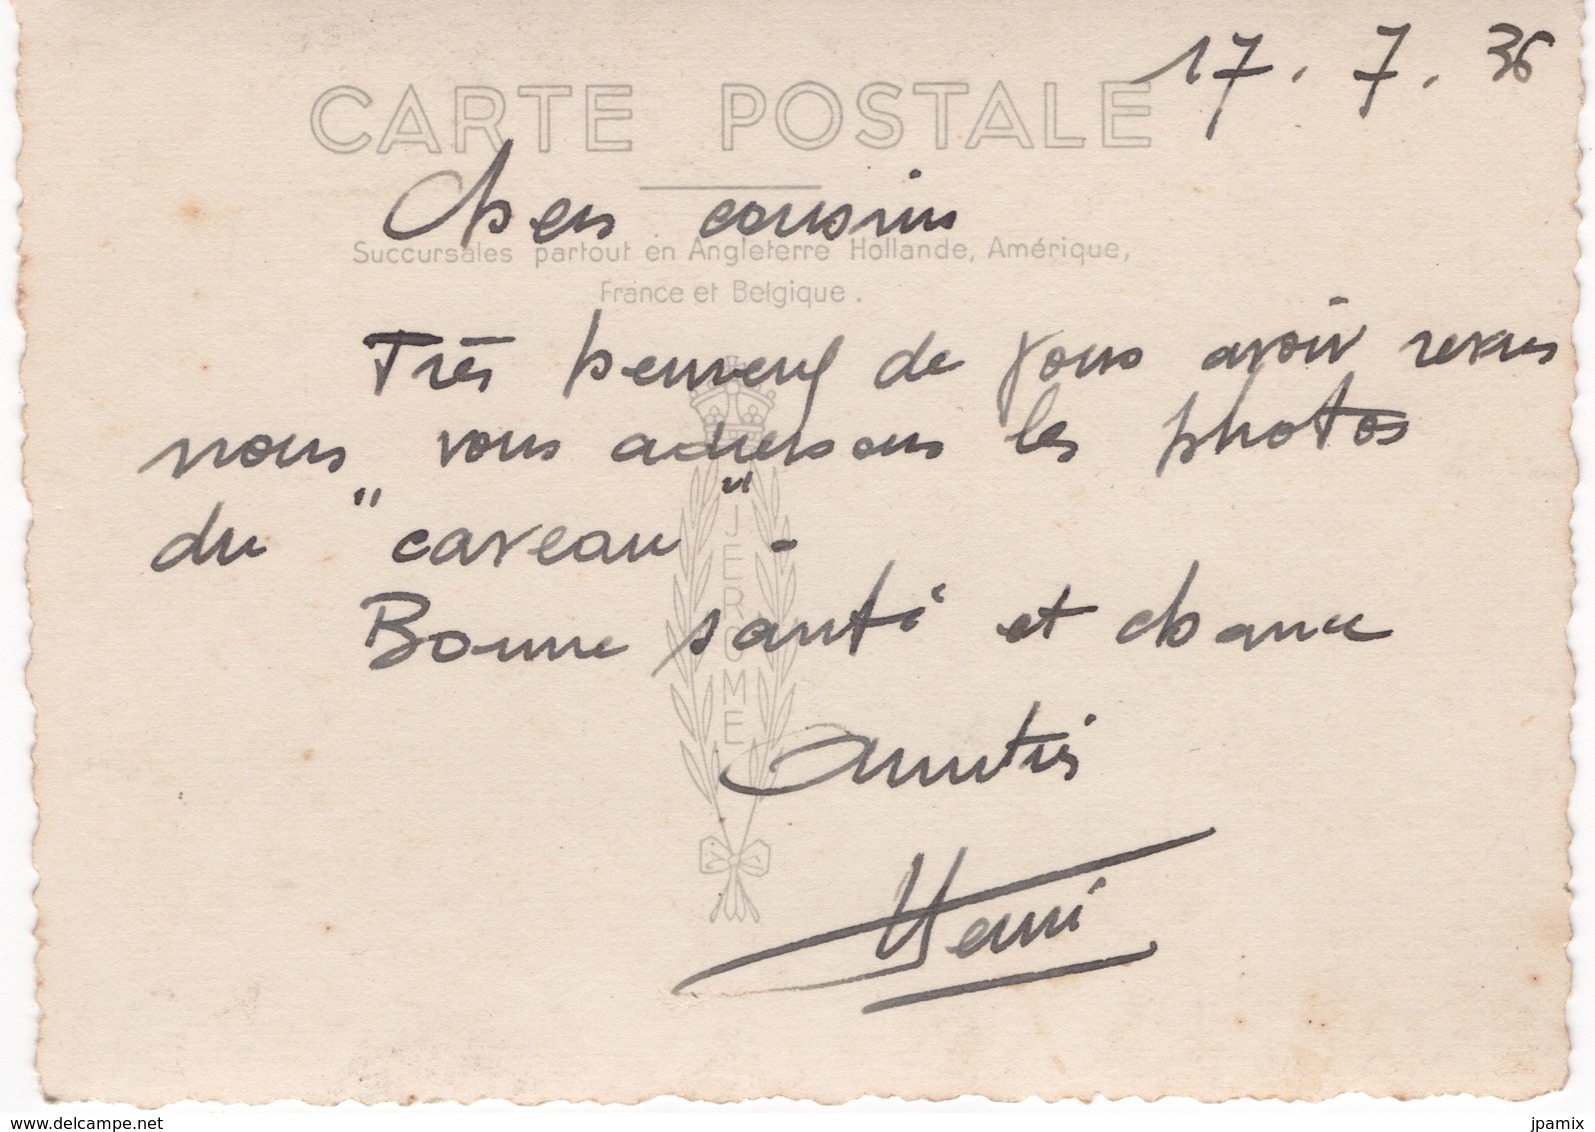 17.7.36
CARTE POSTALE
Chers cousins
Succursales partout en Angleterre Hollande, Amérique,
France et Belgique.
Très heureux de vous avoir revus
nous vous adressons les photos
du "caveau" -
JEROME
Bonne santé et chance
Amitiés
Henri
www.delcampe.net
jpamix